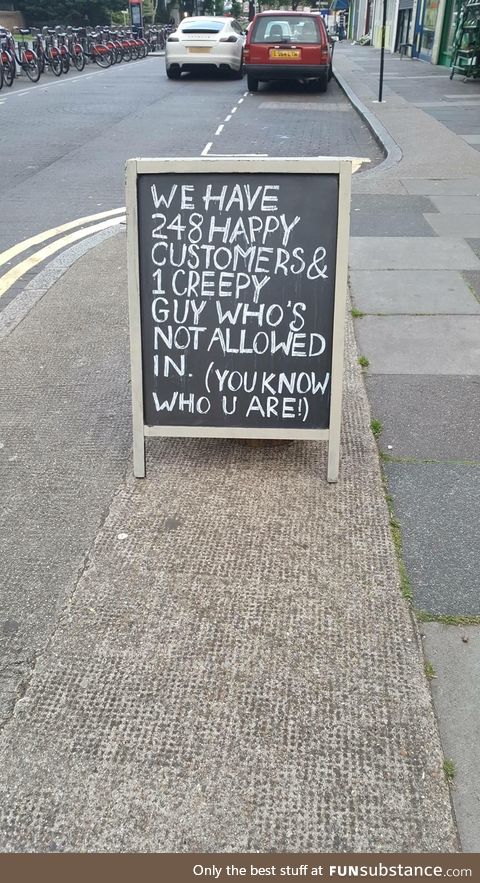 WE HAVE
248 HAPPY
CUSTOMERS &
1 CREEPY
GUY WHO'S
NOT ALLOWED
IN. (YOU KNOW
WHO U ARE!)
Only the best stuff at FUNsubstance.com